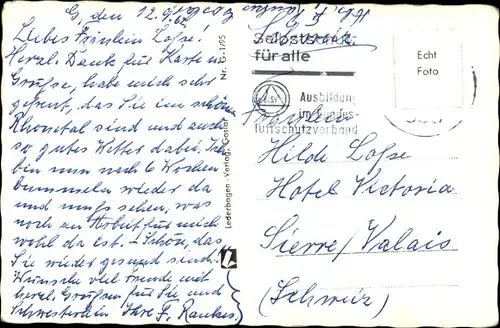 G., den 12. 9. 62
Liebes Fräulein Losse!
Herzl. Dank für Karte u.
Grüsse, habe mich sehr
gefreut, das Sie im schönen
Rhonetal sind und auch
so gutes Wetter dabei. Ich
bin nun nach 6 Wochen
bummeln wieder da
und muss sehen, was
noch an Arbeit für mich
wohl da ist. – Schön, das
Sie wieder gesund sind!
Wünsche viel Freude mit
herzl. Grüßen für Sie und
Schwesterlein Ihre F.
Nr. G-1/95
Lederbogen-Verlag, Goslar
Selbstschutz
für alle
Ausbildung
im Bundes-
luftschutzverband
Echt
Foto
Fräulein
Hilde Losse
Hotel Victoria
Sierre/Valais
(Schweiz)